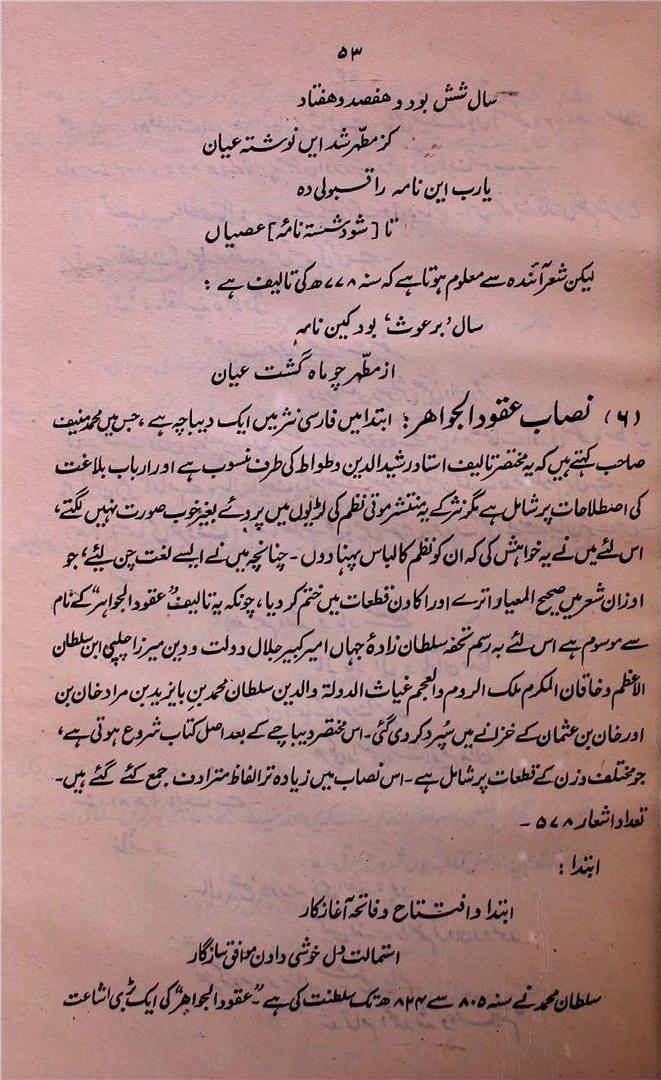 ۵۳
سال شش بود و هفصد و هفتاد
کز مطہر شد ایں نوشتہ عیان
یارب این نامہ را قبولی دہ
تا [شود شستہ نامۂ] عصیاں
لیکن شعر آئندہ سے معلوم ہوتا ہے کہ سنہ ۷۷۸ھ کی تالیف ہے :
سال ’برعوث‘ بود کین نامہ
از مطہر چو ماہ گشت عیان
(۶) نصاب عقود الجواہر: ابتدا میں فارسی نثر میں ایک دیباچہ ہے، جس میں محمد منیف
صاحب کہتے ہیں کہ یہ مختصر تالیف استاد رشید الدین وطواط کی طرف منسوب ہے اور ارباب بلاغت
کی اصطلاحات پر شامل ہے مگر نثر کے یہ منتشر موتی نظم کی لڑیوں میں پردئے بغیر خوب صورت نہیں لگتے،
اس لئے میں نے یہ خواہش کی کہ ان کو نظم کا لباس پہنا دوں ۔ چنانچہ میں نے ایسے لغت چن لیئے، جو
اوزان شعر میں صحیح المعیار اترے اور اکاون قطعات میں ختم کر دیا، چونکہ یہ تالیف ”عقود الجواہر“ کے نام
سے موسوم ہے اس لئے بہ رسم تحفہ سلطان زادۂ جہاں امیر کبیر جلال دولت و دین میرزا چلپی ابن سلطان
الاعظم و خاقان المکرم ملک الروم والعجم غیاث الدولۃ والدین سلطان محمد بن بایزید بن مراد خان بن
اورخان بن عثمان کے خزانے میں سپرد کر دی گئی۔ اس مختصر دیباچے کے بعد اصل کتاب شروع ہوتی ہے،
جو مختلف وزن کے قطعات پر شامل ہے۔ اس نصاب میں زیادہ تر الفاظ مترادف جمع کئے گئے ہیں۔
تعداد اشعار ۵۷۸ ۔
ابتدا :
ابتدا و افتتاح و فاتحہ آغاز کار
استمالت دل خوشی دادن موافق سازگار
سلطان محمد نے سنہ ۸۰۵ سے ۸۲۴ ھ تک سلطنت کی ہے ۔ ”عقود الجواہر“ کی ایک بڑی اشاعت